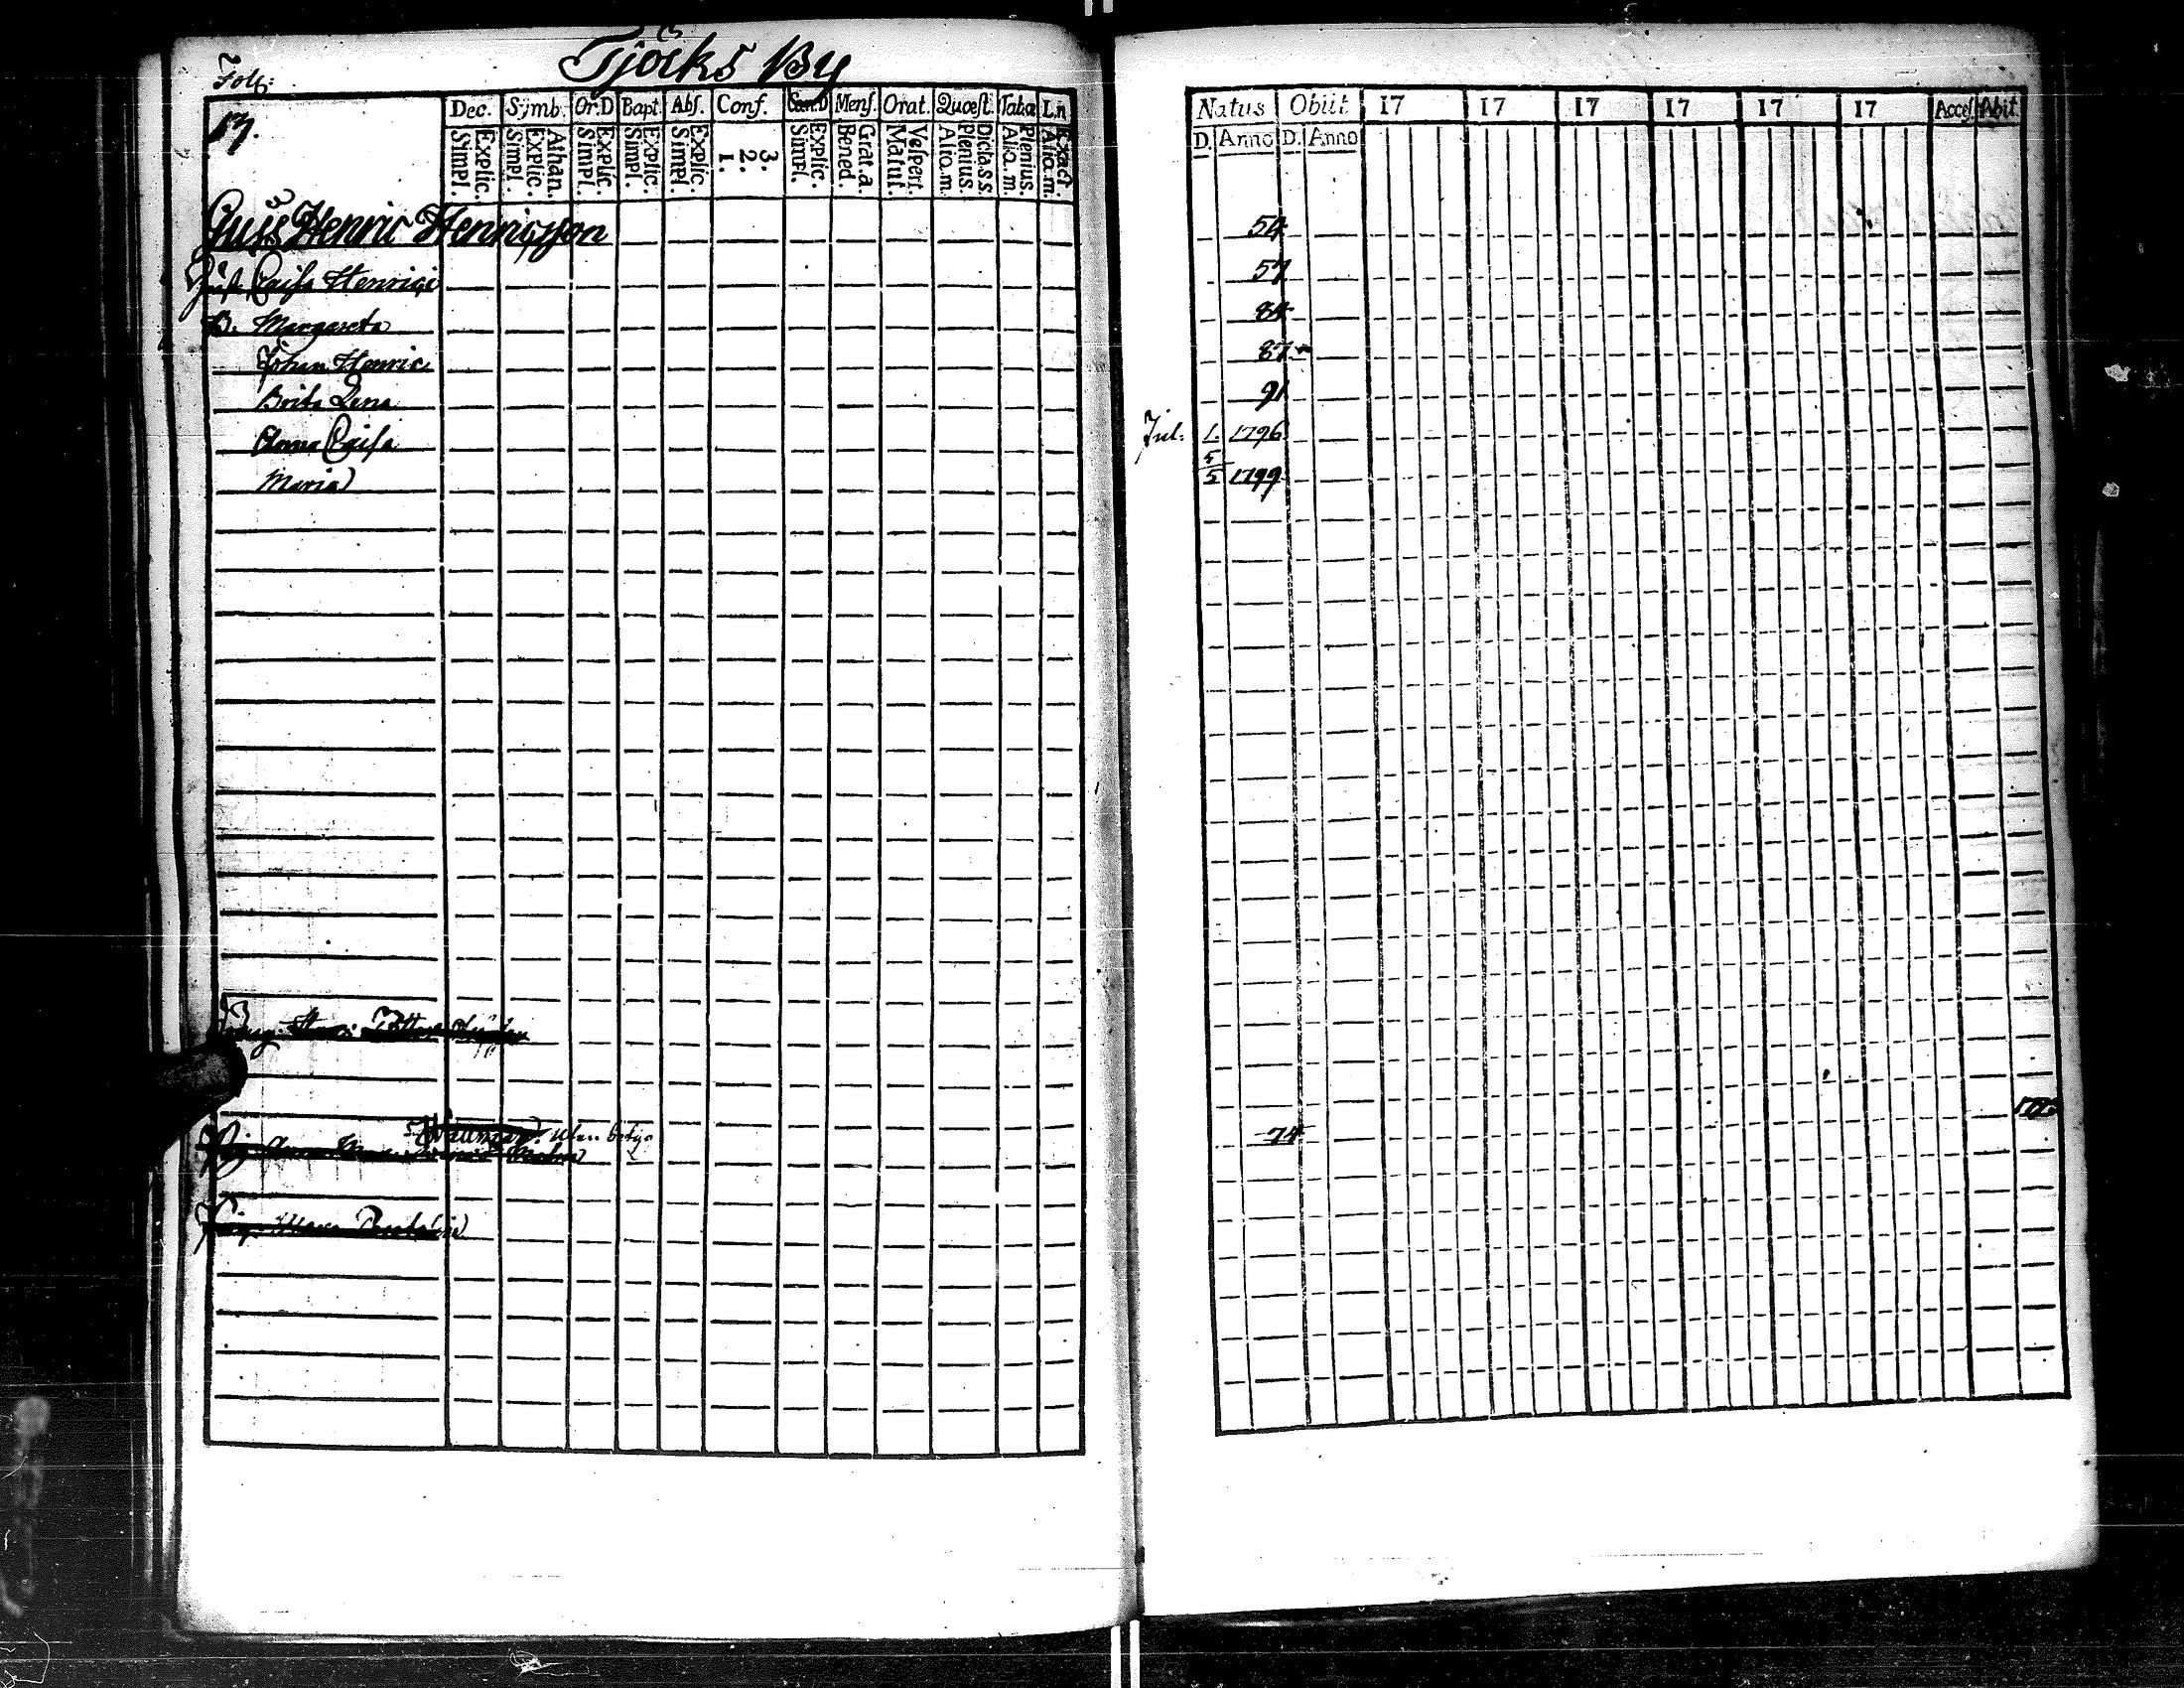 Tjöcks By
Fol:
17.
Dec. Symb. Or.D Bapt. Abs. Conf. Com.D Mens. Orat. Quæst. Tab.æ L.n
Explic. Simpl. Athan. Explic. Simpl. Explic. Simpl. Explic. Simpl. Explic. Simpl. 3. 2. 1. Explic. Simpl. Grat.a. Bened. Vespert. Matut. Dicta.s.s. Plenius. Aliq.m. Plenius. Aliq.m. Exact. Aliq.m.
Natus Obiit. 17 17 17 17 17 17 Acces. Abit.
D. Anno D. Anno
Henric Henricsson 54
Hust. Caisa Henrici 57
B. Margareta 84
Johan Henric 87
Brita Lena 91
Anna Caisa Jul: 1. 1796
Maria 5/5 1799
utan betyg
Pig. Anna 74
Pig. Maria